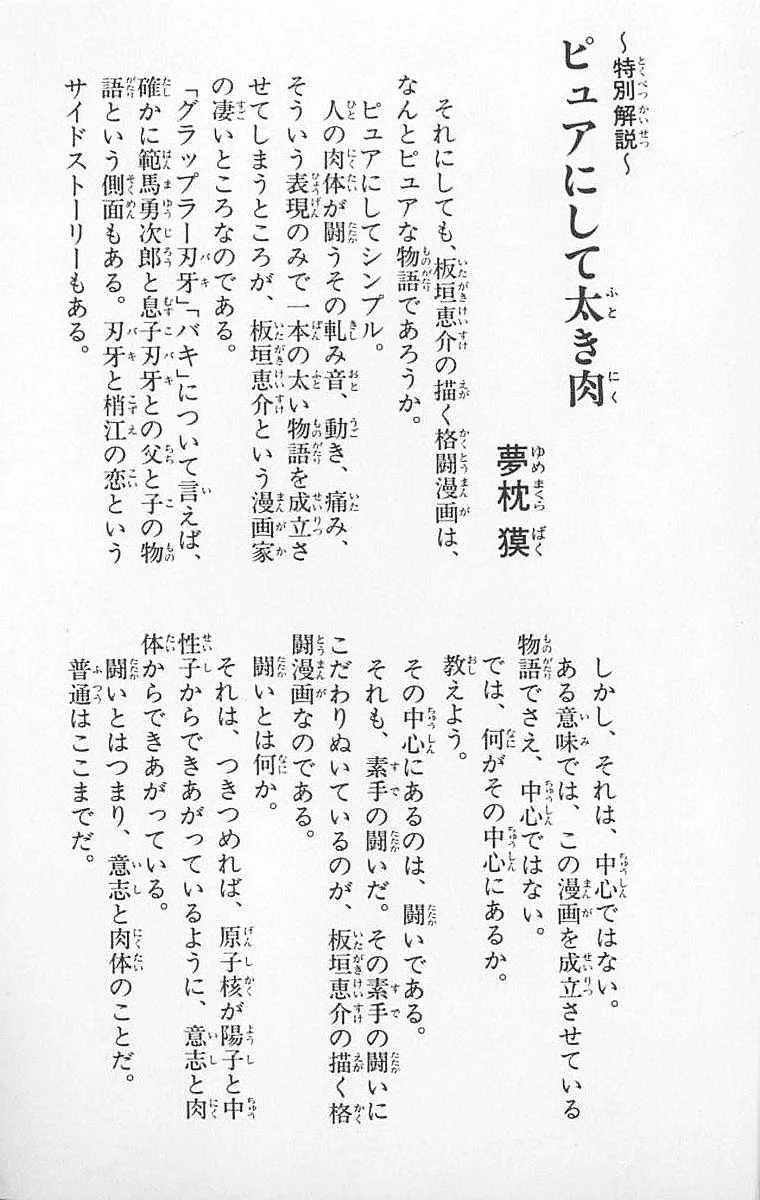 ～特別解説～
ピュアにして太き肉
夢枕 獏
それにしても、板垣恵介の描く格闘漫画は、
なんとピュアな物語であろうか。
ピュアにしてシンプル。
人の肉体が闘うその軋み音、動き、痛み、
そういう表現のみで一本の太い物語を成立さ
せてしまうところが、板垣恵介という漫画家
の凄いところなのである。
「グラップラー刃牙」「バキ」について言えば、
確かに範馬勇次郎と息子刃牙との父と子の物
語という側面もある。刃牙と梢江の恋という
サイドストーリーもある。
しかし、それは、中心ではない。
ある意味では、この漫画を成立させている
物語でさえ、中心ではない。
では、何がその中心にあるか。
教えよう。
その中心にあるのは、闘いである。
それも、素手の闘いだ。その素手の闘いに
こだわりぬいているのが、板垣恵介の描く格
闘漫画なのである。
闘いとは何か。
それは、つきつめれば、原子核が陽子と中
性子からできあがっているように、意志と肉
体からできあがっている。
闘いとはつまり、意志と肉体のことだ。
普通はここまでだ。